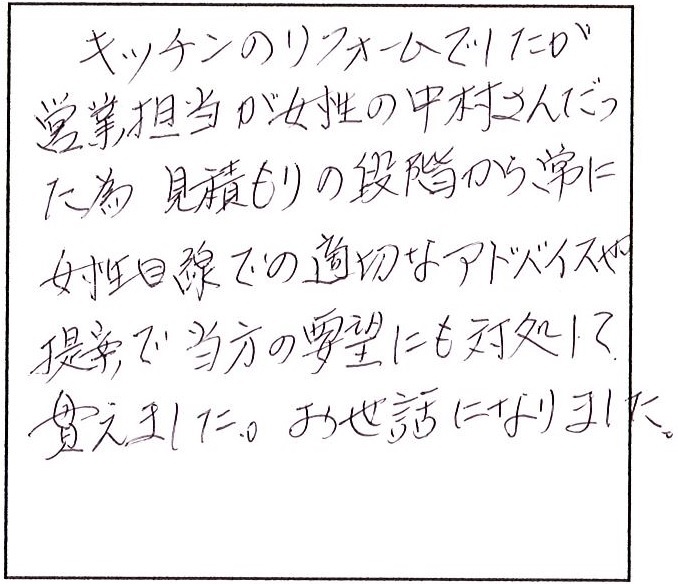 キッチンのリフォームでしたが
営業担当が女性の中村さんだっ
た為 見積もりの段階から、常に
女性目線での適切なアドバイスや
提案で当方の要望にも対処して
貰えました。お世話になりました。